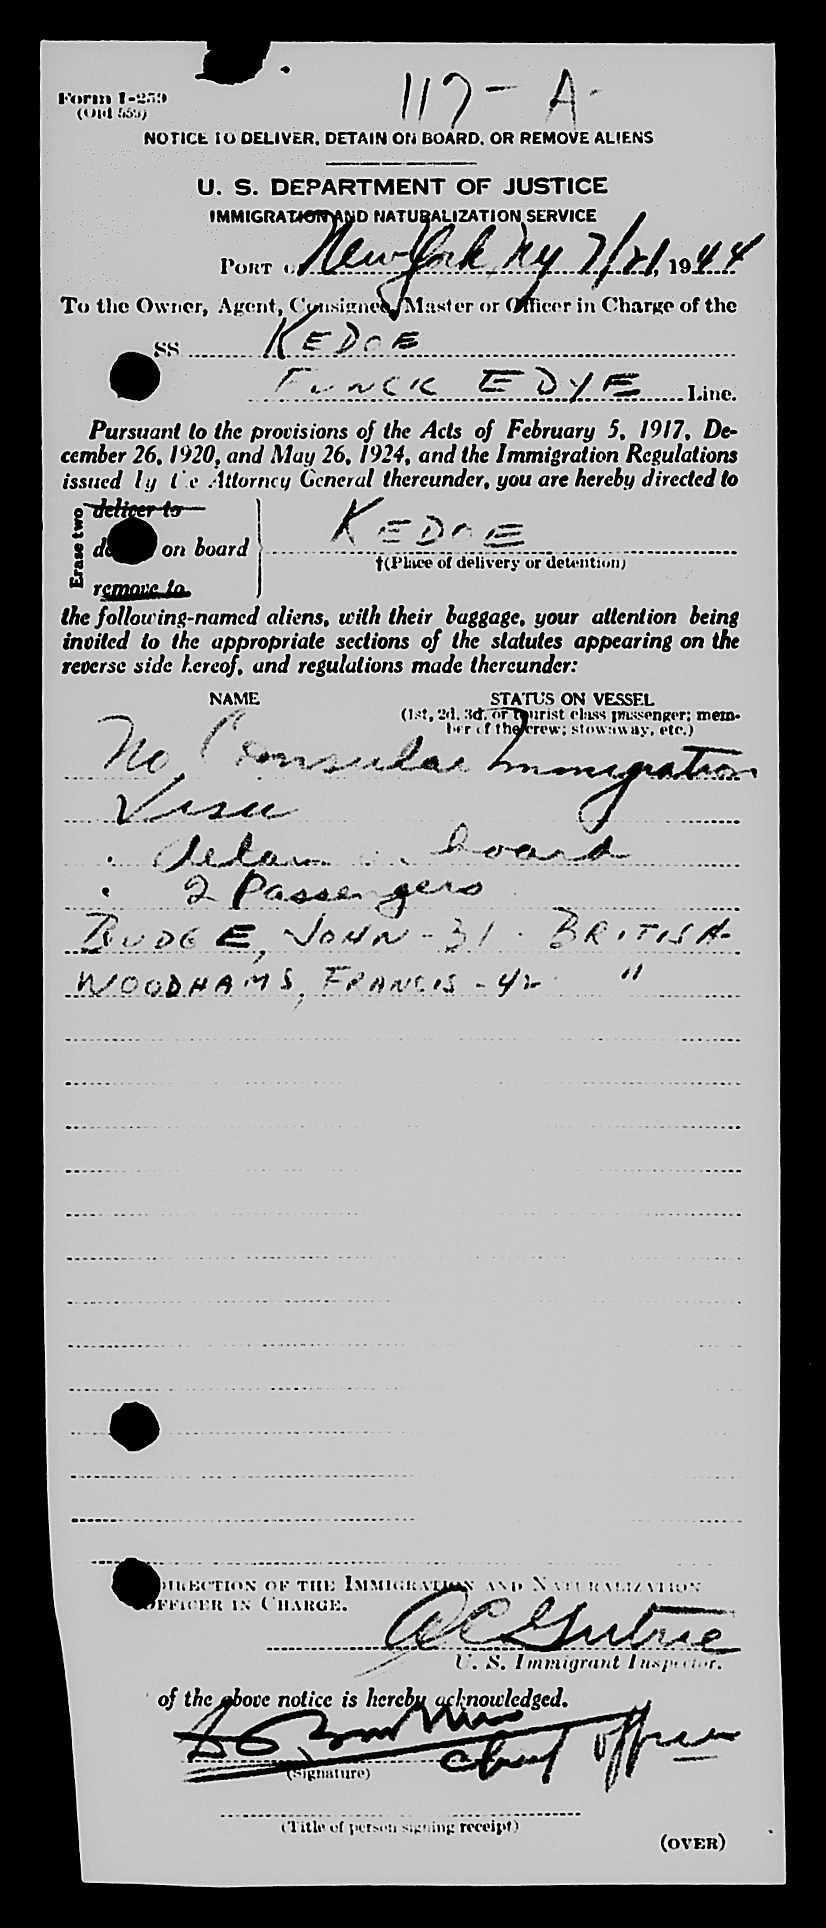 117-A-
Form I-259
(Old 555)
NOTICE TO DELIVER, DETAIN ON BOARD, OR REMOVE ALIENS
U. S. DEPARTMENT OF JUSTICE
IMMIGRATION AND NATURALIZATION SERVICE
PORT New York, Ny 7/21, 1944
To the Owner, Agent, Consignee, Master or Officer in Charge of the
SS KEDOE
FUNCK EDYE Line.
Pursuant to the provisions of the Acts of February 5, 1917, De-
cember 26, 1920, and May 26, 1924, and the Immigration Regulations
issued by the Attorney General thereunder, you are hereby directed to
Erase two
deliver to
on board KEDOE
†(Place of delivery or detention)
remove to
the following-named aliens, with their baggage, your attention being
invited to the appropriate sections of the statutes appearing on the
reverse side hereof, and regulations made thereunder:
NAME STATUS ON VESSEL
(1st, 2d, 3d, or tourist class passenger; mem-
ber of the crew; stowaway, etc.)
No Consular Immigration
Visa
detain on board
2 Passengers
BUDGE, JOHN - 31 - BRITISH-
WOODHAMS, FRANCIS - 42 "
DIRECTION OF THE IMMIGRATION AND NATURALIZATION
OFFICER IN CHARGE.
U. S. Immigrant Inspector.
of the above notice is hereby acknowledged.
Chief Officer
(Signature)
(Title of person signing receipt)
(OVER)